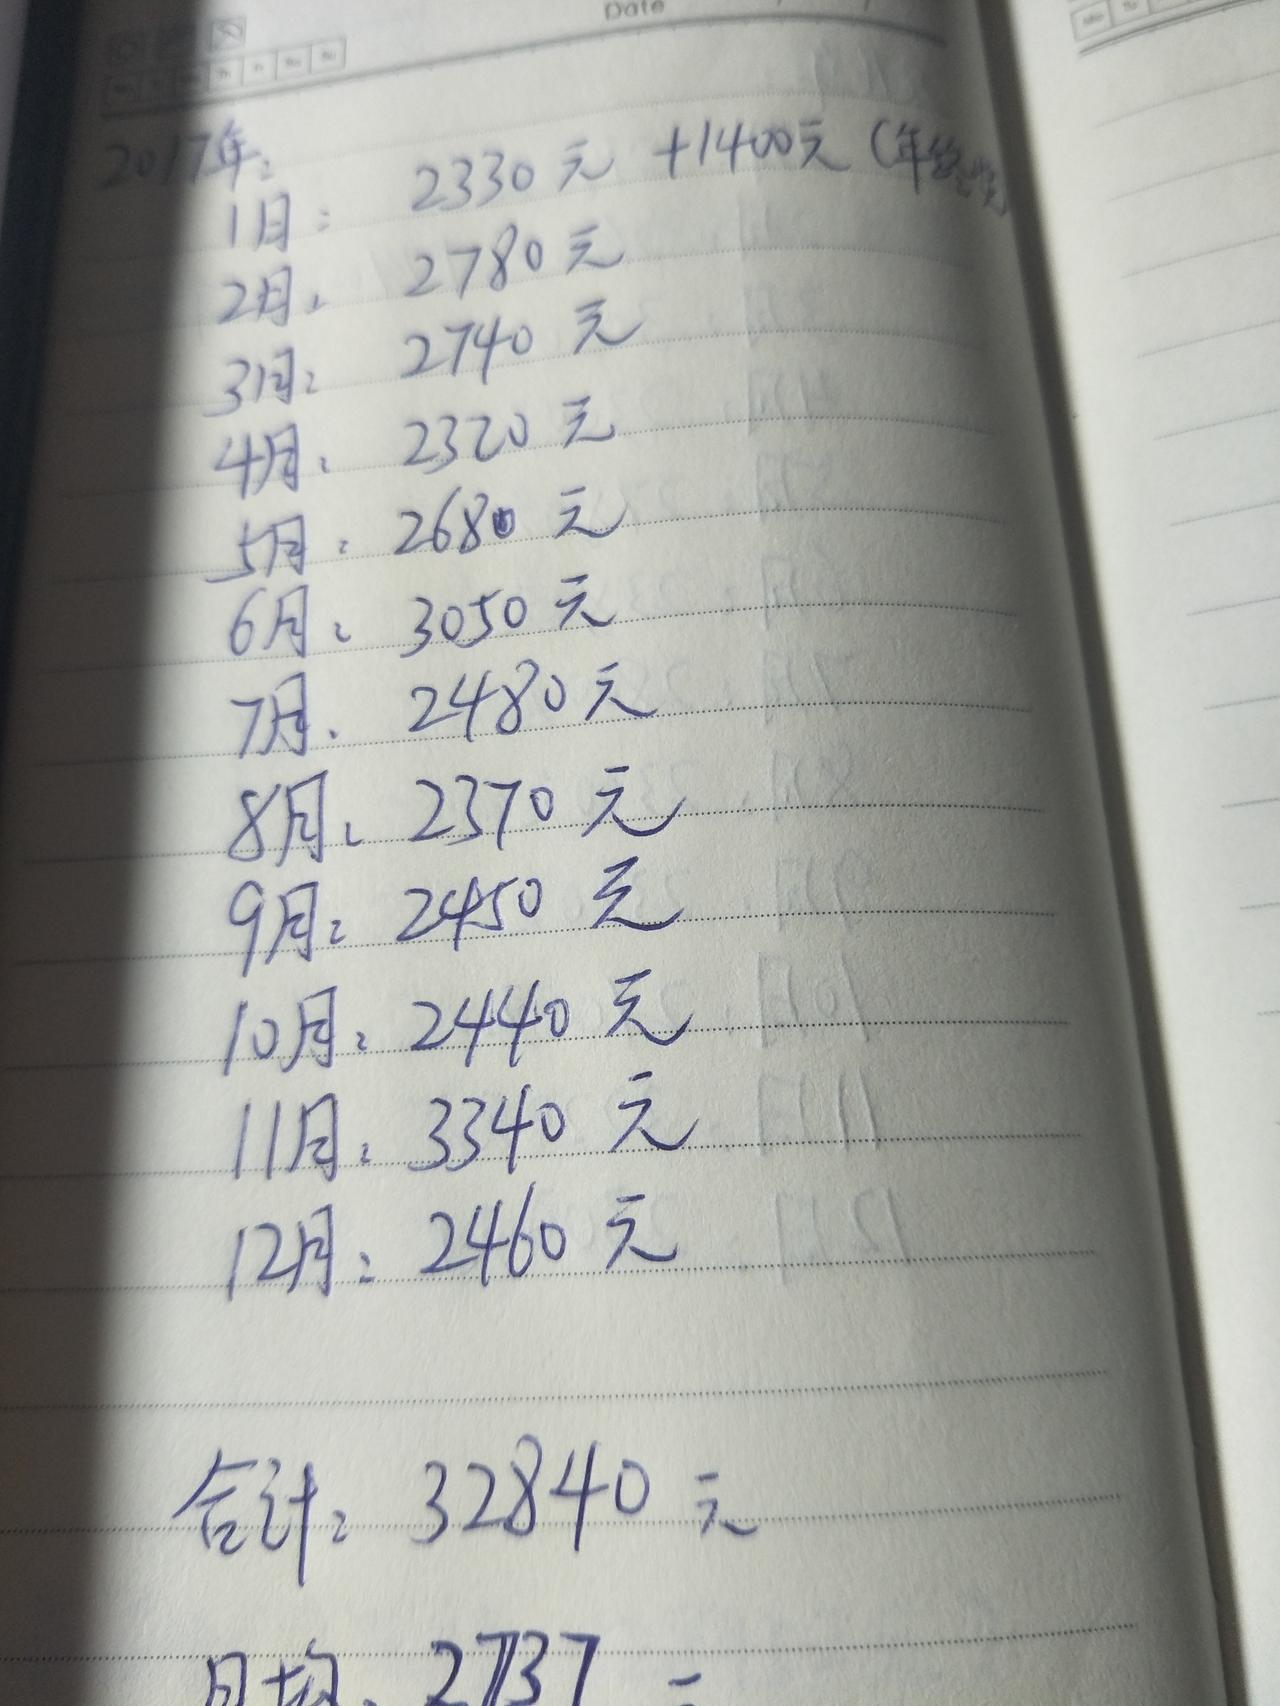 Date
2017年:
1月: 2330元 +1400元 (年终奖)
2月: 2780元
3月: 2740元
4月: 2320元
5月: 2680元
6月: 3050元
7月: 2480元
8月: 2370元
9月: 2450元
10月: 2440元
11月: 3340元
12月: 2460元
合计: 32840元
月均: 2737